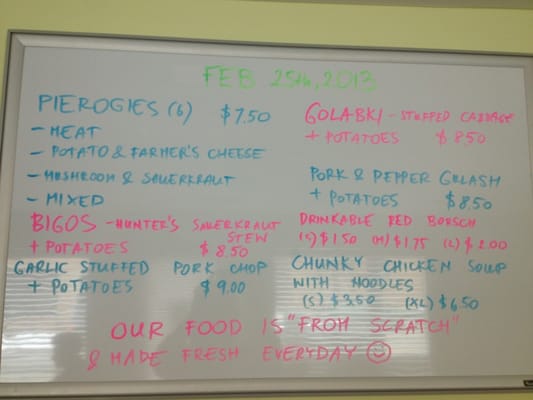 FEB 25th, 2013
PIEROGIES (6) $7.50
- MEAT
- POTATO & FARMER'S CHEESE
- MUSHROOM & SAUERKRAUT
- MIXED
BIGOS - HUNTER'S SAUERKRAUT
STEW
+ POTATOES $8.50
GARLIC STUFFED PORK CHOP
+ POTATOES $9.00
GOLABKI - STUFFED CABBAGE
+ POTATOES $8.50
PORK & PEPPER GULASH
+ POTATOES $8.50
DRINKABLE RED BORSCH
(S) $1.50 (M) $1.75 (L) $2.00
CHUNKY CHICKEN SOUP
WITH NOODLES
(S) $3.50 (XL) $6.50
OUR FOOD IS "FROM SCRATCH"
& MADE FRESH EVERYDAY ☺